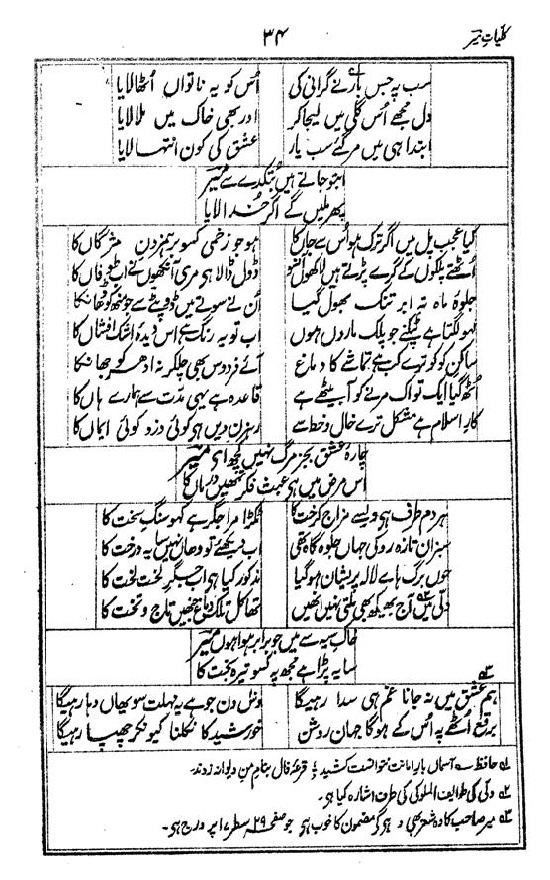 کلیات میر
۳۴
سب پہ جس بار نے گرانی کی اُس کو یہ ناتواں اُٹھا لایا
دل مجھے اُس گلی میں لیجا کر اور بھی خاک میں ملا لایا
ابتدا ہی میں مرگئے سب یار عشق کی کون انتہا لایا
اب تو جاتے ہیں بُتکدے سے میر
پھر ملیں گے اگر خدا لایا
کیا عجب پل میں اگر ترک ہو اُس سے جاں کا ہو جو زخمی کسو برہم زدن مژگاں کا
اُٹھتے پلکوں کے گرے پڑتے ہیں لاکھوں آنسو ڈول ڈالا ہو مری آنکھوں نے اب طوفاں کا
جلوۂ ماہ تہ ابر تنک بھول گیا اُن نے سوتے میں ڈوپٹے سے جو منھ کو ڈھانکا
لہو لگتا ہے ٹپکنے جو پلک ماروں ہوں اب تو یہ رنگ ہے اس دیدۂ اشک افشاں کا
ساکن کو کو ترے کب ہے تماشے کا دماغ آئے فردوس بھی چلکر نہ ادھر کو جھانکا
اُٹھ گیا ایک تو اک مرنے کو آ بیٹھے ہے قاعدہ ہے یہی مدت سے ہمارے ہاں کا
کار اسلام ہے مشکل ترے خال و خط سے رہزن دیں ہو کوئی دزد کوئی ایماں کا
چارۂ عشق بجز مرگ نہیں کچھ اے میر
اس مرض میں ہی عبث فکر تمھیں درماں کا
ہر دم طرف ہی ویسے مزاج کرخت کا ٹکڑا مرا جگر ہے کہو سنگ سخت کا
سبزان تازہ رو کی جہاں جلوہ گاہ تھی اب دیکھئے تو وھاں نہیں سایہ درخت کا
جوں برگ ہاے لالہ پریشان ہو گیا مذکور کیا ہو اب جگر لخت لخت کا
دلّی میں آج بھیکھ بھی ملتی نہیں اُنھیں تھا کل تلک دماغ جنھیں تاج و تخت کا
خاک سیہ سے میں جو برابر ہوا ہوں میر
سایہ پڑا ہے مجھ پہ کسو تیرہ بخت کا
ہم عشق میں نہ جانا غم ہی سدا رہیگا دس دن جو ہے یہ مہلت سو یھاں دہا رہیگا
برقع اُٹھے پہ اُس کے ہوگا جہان روشن خورشید کا نکلنا کیونکر چھپا رہیگا
۱؎ حافظ ؎ آسماں بار امانت نتوانست کشید ؛ قرعۂ فال بنام من دیوانہ زدند۔
۲؎ دلّی کی طوایف الملوکی کی طرف اشارہ کیا ہو۔
۳؎ میر صاحب کا وہ شعر بھی مضمون کا خوب ہو جو صفحہ ۲۹ سطر ۷ اپر درج ہو۔